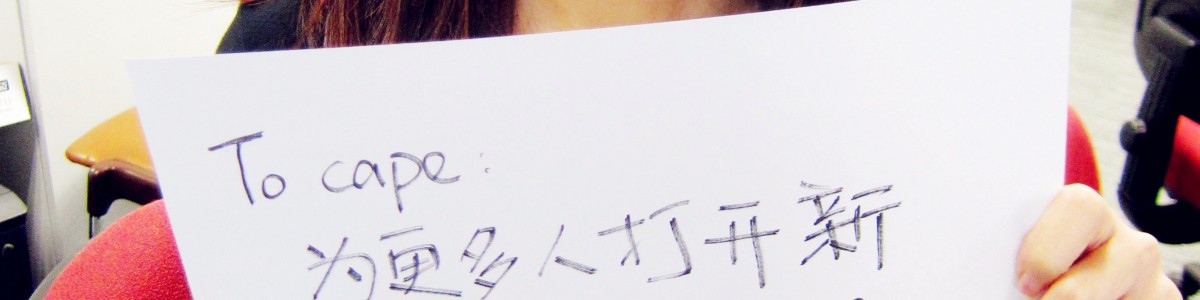 To cape:
为更多人打开新